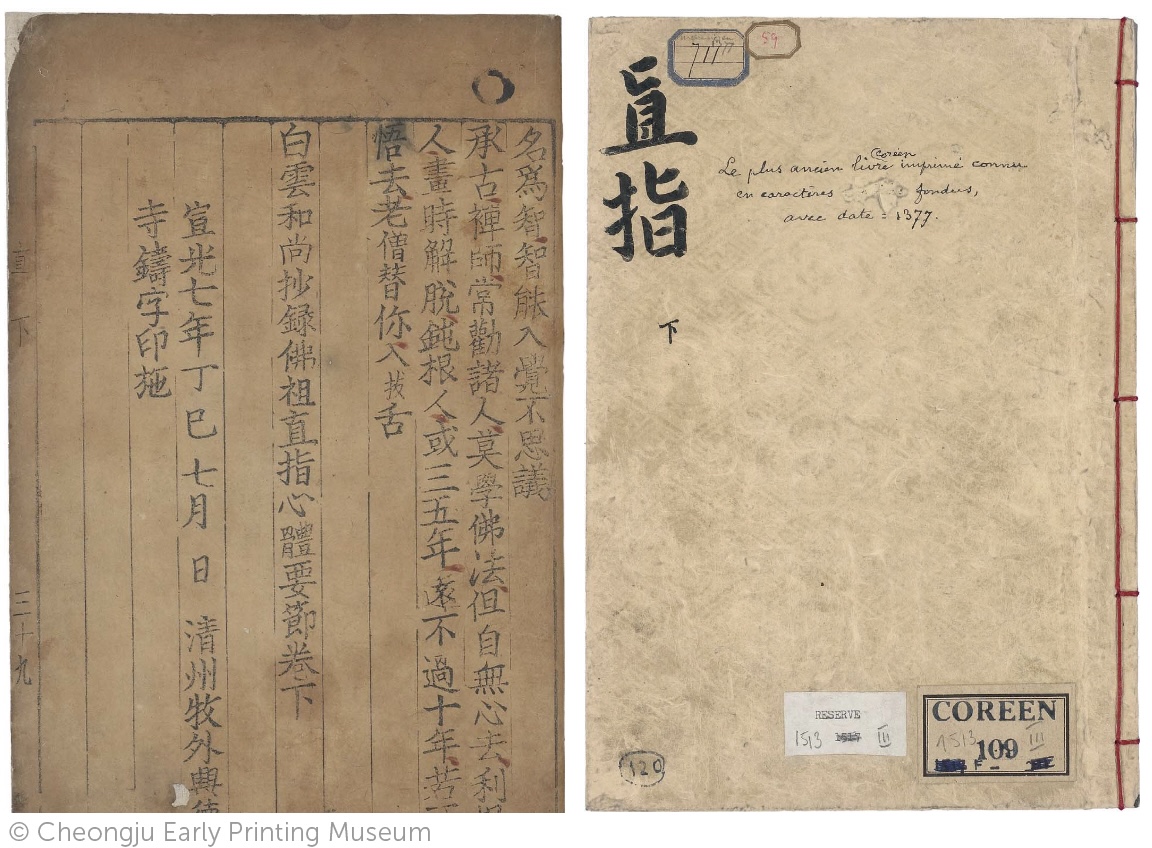 名爲智智能入覺不思議
承古禪師常勸諸人莫學佛法但自無心去利
人畫時解脫鈍根人或三五年遠不過十年若
悟去老僧替你入拔舌
白雲和尚抄録佛祖直指心體要節卷下
宣光七年丁巳七月 日 清州牧外興德
寺鑄字印施
直下 三十九
59
直指
下
Le plus ancien livre coréen imprimé connu
en caractères fondus,
avec date = 1377.
RESERVE
1513 III
COREEN
1513 III
109
120
© Cheongju Early Printing Museum